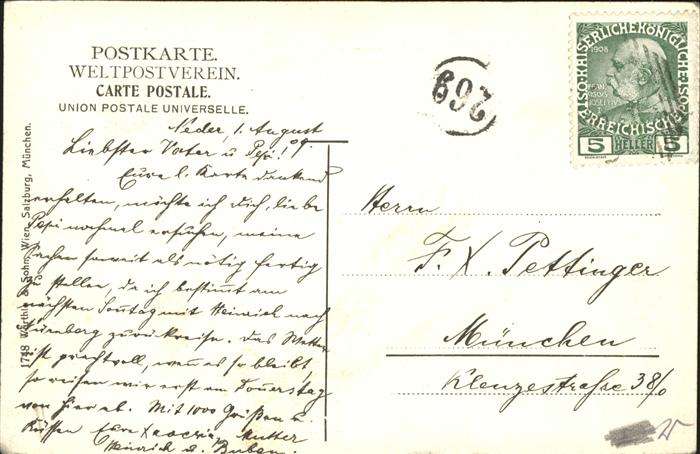 POSTKARTE.
WELTPOSTVEREIN.
CARTE POSTALE.
UNION POSTALE UNIVERSELLE.
Neder, 1. August 09.
Liebster Vater u Pepi!
Eure l. Karte dankend
erhalten, möchte ich Dich, liebe
Pepi nochmal ersuchen, meine
Sachen soweit als nötig fertig
zu stellen, da ich bestimmt am
nächsten Sonntag mit Heinrich nach
Nürnberg zurückreise. Das Wetter
ist prachtvoll, wenn es so bleibt,
so reisen wir erst am Donnerstag
von hier ab. Mit 1000 Grüßen u.
Küssen Eure Mutter
Heinrich u. Buben.
1718 Würthle & Sohn, Wien, Salzburg, München.
269
KAISERLICHE KÖNIGLICHE
ÖSTERREICHISCHE POST
1908
5 HELLER 5
Herrn
F. X. Pettinger
München
Klenzestraße 38/0